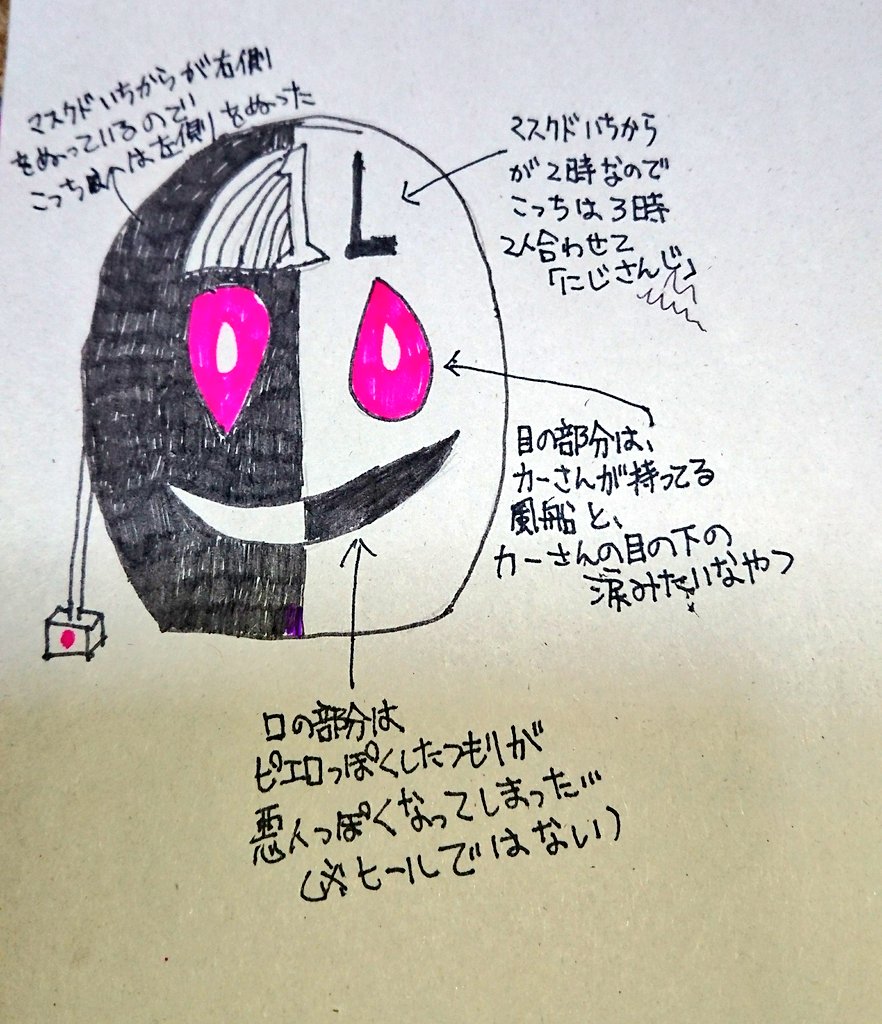 マスクドいちからが右側
をぬっているので
こっちは左側をぬった
マスクドいちから
が2時なので
こっちは3時
2人合わせて
「にじさんじ」
目の部分は、
カーさんが持ってる
風船と、
カーさんの目の下の
涙みたいなやつ
口の部分は
ピエロっぽくしたつもりが
悪人っぽくなってしまった…
(※ヒールではない)